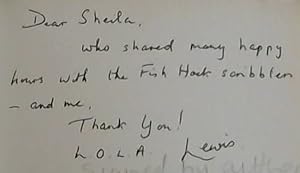 Dear Sheila,
who shared many happy
hours with the Fish Hoek scribblers
– and me.
Thank You!
L.O.L.A. Lewis
signed by author